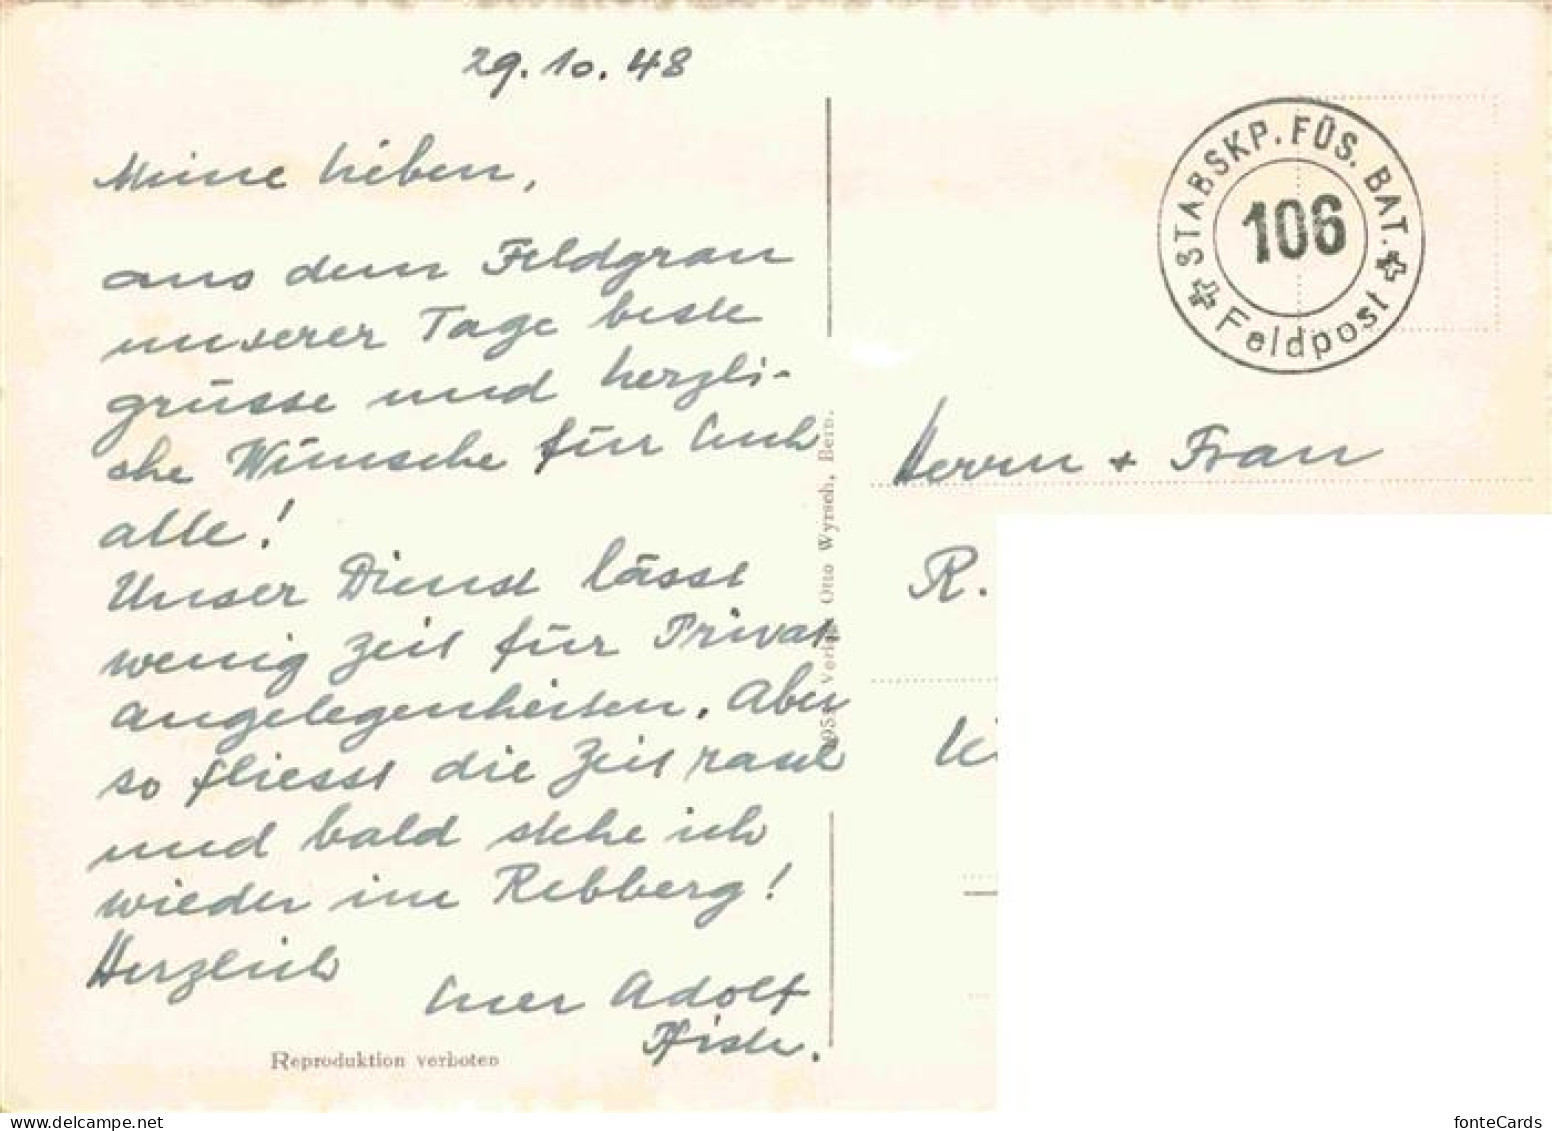 29.10.48
Meine lieben,
aus dem Feldgrau
unserer Tage beste
grüsse und herzli-
che Wünsche für Euch
alle!
Unser Dienst lässt
wenig Zeit für Privat-
angelegenheiten. Aber
so fliesst die Zeit rasch
und bald stehe ich
wieder im Rebberg!
Herzlich
Euer Adolf
Pfister.
Reproduktion verboten
Verlag Otto Wyrsch, Bern.
STABSKP. FÜS. BAT.
106
Feldpost
Herrn + Frau
R.
fonteCards